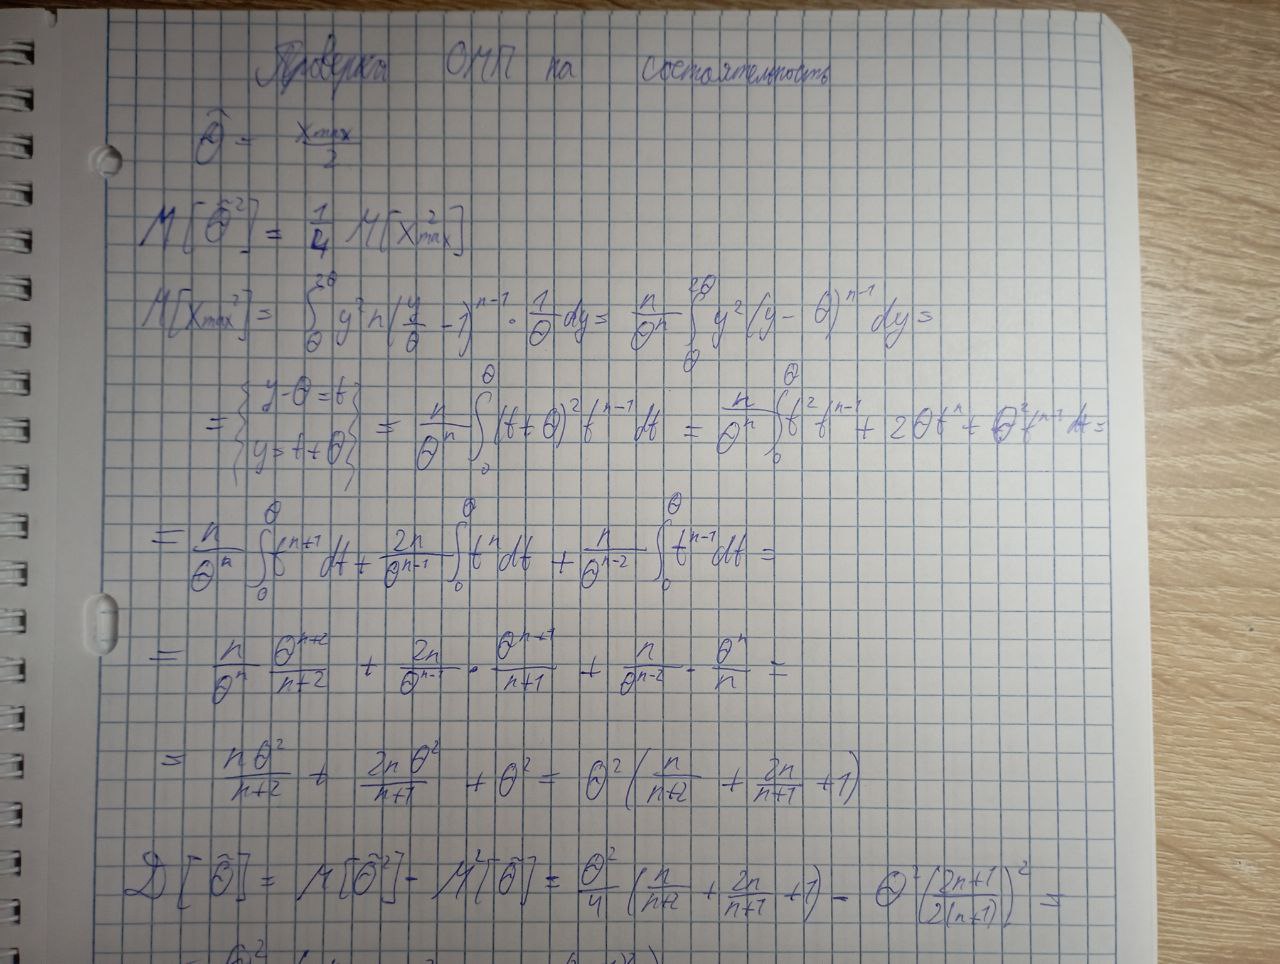 Проверка ОМП на состоятельность
θ̂ = xmax/2
M[θ̃²] = 1/4 M[x²max]
M[xmax²] = ∫_θ^{2θ} y² n (y/θ - 1)^{n-1} · 1/θ dy = n/θⁿ ∫_θ^{2θ} y² (y - θ)^{n-1} dy =
= {y - θ = t; y = t + θ} = n/θⁿ ∫_0^θ (t + θ)² t^{n-1} dt = n/θⁿ ∫_0^θ t² t^{n-1} + 2θtⁿ + θ² t^{n-1} dt =
= n/θⁿ ∫_0^θ t^{n+1} dt + 2n/θ^{n-1} ∫_0^θ tⁿ dt + n/θ^{n-2} ∫_0^θ t^{n-1} dt =
= n/θⁿ θ^{n+2}/(n+2) + 2n/θ^{n-1} · θ^{n+1}/(n+1) + n/θ^{n-2} · θⁿ/n =
= nθ²/(n+2) + 2nθ²/(n+1) + θ² = θ² (n/(n+2) + 2n/(n+1) + 1)
D[θ̃] = M[θ̃²] - M²[θ̃] = θ²/4 (n/(n+2) + 2n/(n+1) + 1) - θ² ((2n+1)/(2(n+1)))² =